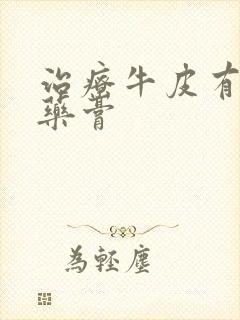 治療牛皮有
藥膏
為輕塵